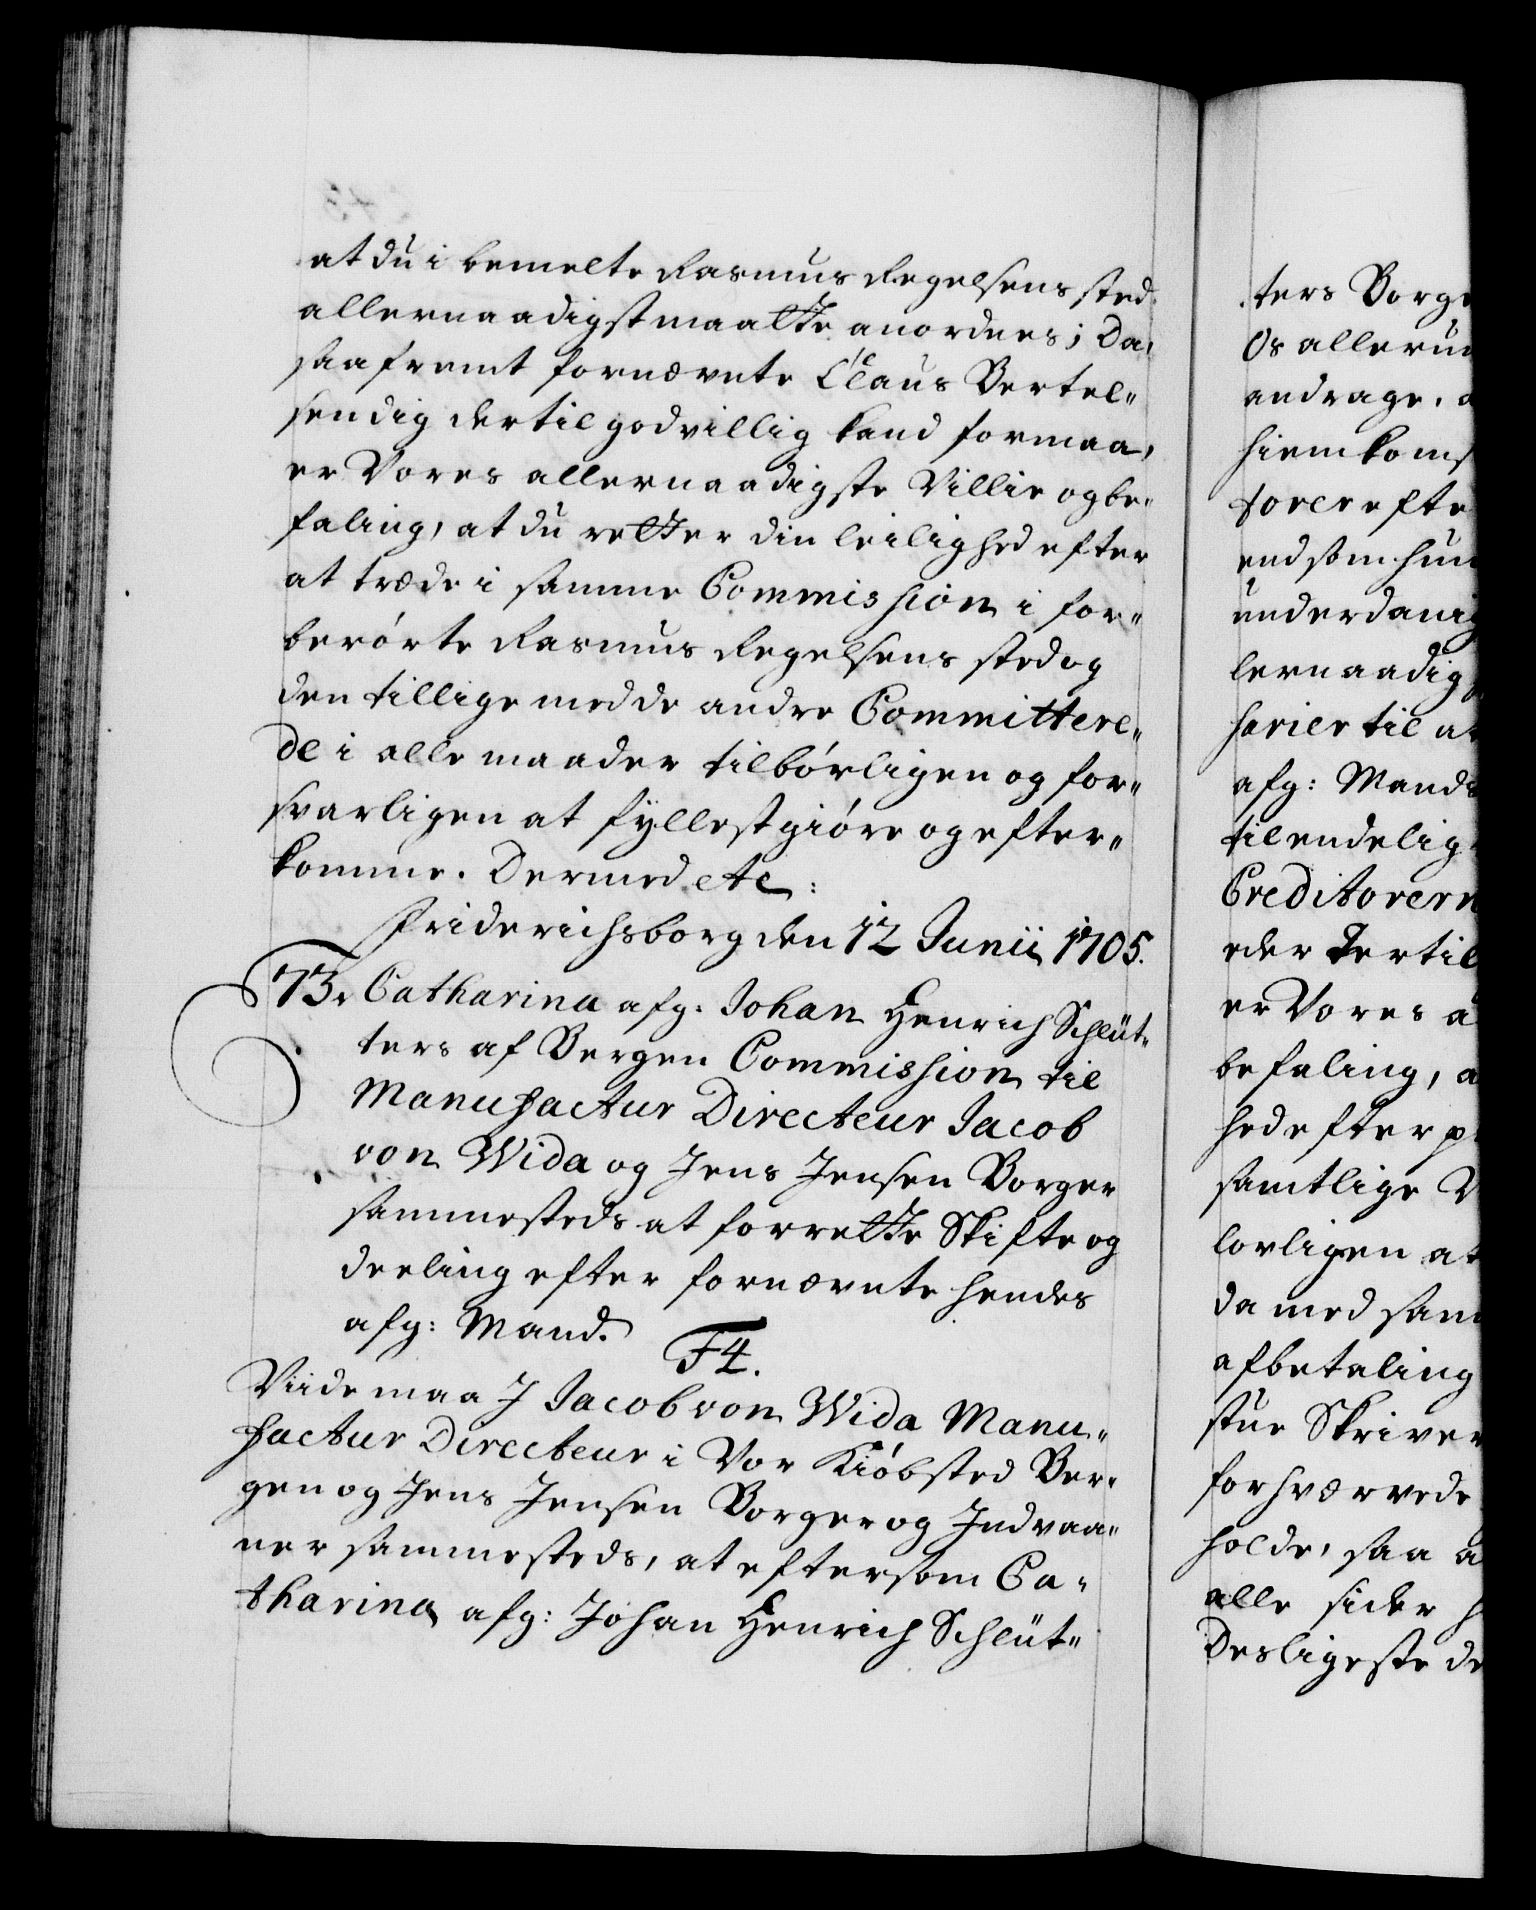 at du i bemelte Rasmus Regelsens sted
allernaadigst maatte anordnes; Da,
saafremt fornævnte Claus Bertel-
sen dig dertil godvillig kand formaa,
er Vores allernaadigste Villie og be-
faling, at du retter din leilighed efter
at træde i samme Commission i for-
berørte Rasmus Regelsens sted og
den tillige med de andre Committere-
de i alle maader tilbørligen og for-
svarligen at fyllestgiøre og efter-
komme. Dermed etc:
Friderichsborg den 12 Junii 1705.
73. Catharina afg: Johan Henrich Schlüt-
ters af Bergen Commission til
Manufactur Directeur Jacob
von Wida og Jens Jensen Borger
sammesteds at forrette Skifte og
deeling efter fornævnte hendes
afg: Mand.
F4.
Viide maa J Jacob von Wida Manu-
factur Directeur i Vor Kiøbsted Ber-
gen og Jens Jensen Borger og Indvaa-
ner sammesteds, at eftersom Ca-
tharina afg: Johan Henrich Schlüt-
ters Borge
Os allerun
andrage, a
hiemkoms
torer efte
end som hun
underdanig
lernaadig
sarier til at
afg: Mands
til endelig
Creditorern
eder dertil
er Vores a
befaling, a
hed efter p
samtlige V
lovligen at
da med sam
afbetaling
stue Skriver
forhværvede
holde, saa a
alle sider h
Desligeste de